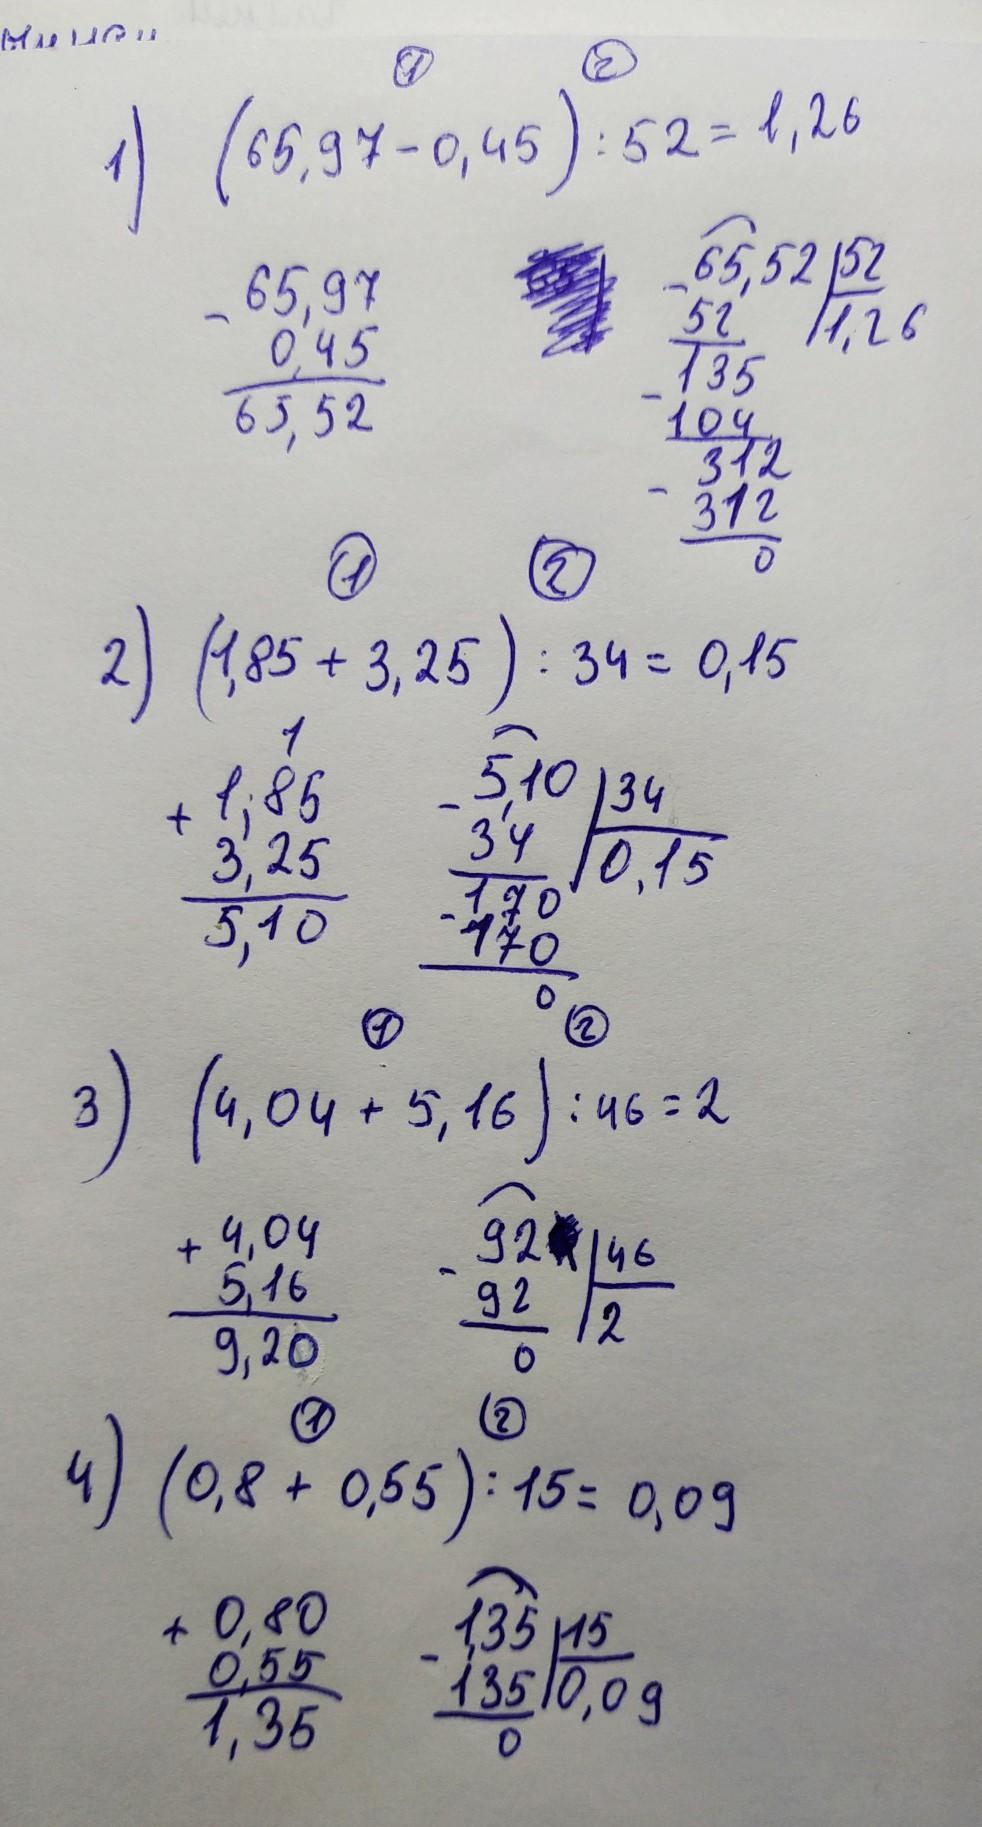 ① ②
1) (65,97 - 0,45) : 52 = 1,26
- 65,97
0,45
65,52
- 65,52 | 52
52 1,26
- 135
104
- 312
312
0
① ②
2) (1,85 + 3,25) : 34 = 0,15
1
+ 1,85
3,25
5,10
- 5,10 | 34
34 0,15
- 170
170
0
① ②
3) (4,04 + 5,16) : 46 = 2
+ 4,04
5,16
9,20
- 92 | 46
92 2
0
① ②
4) (0,8 + 0,55) : 15 = 0,09
+ 0,80
0,55
1,35
- 1,35 | 15
135 0,09
0